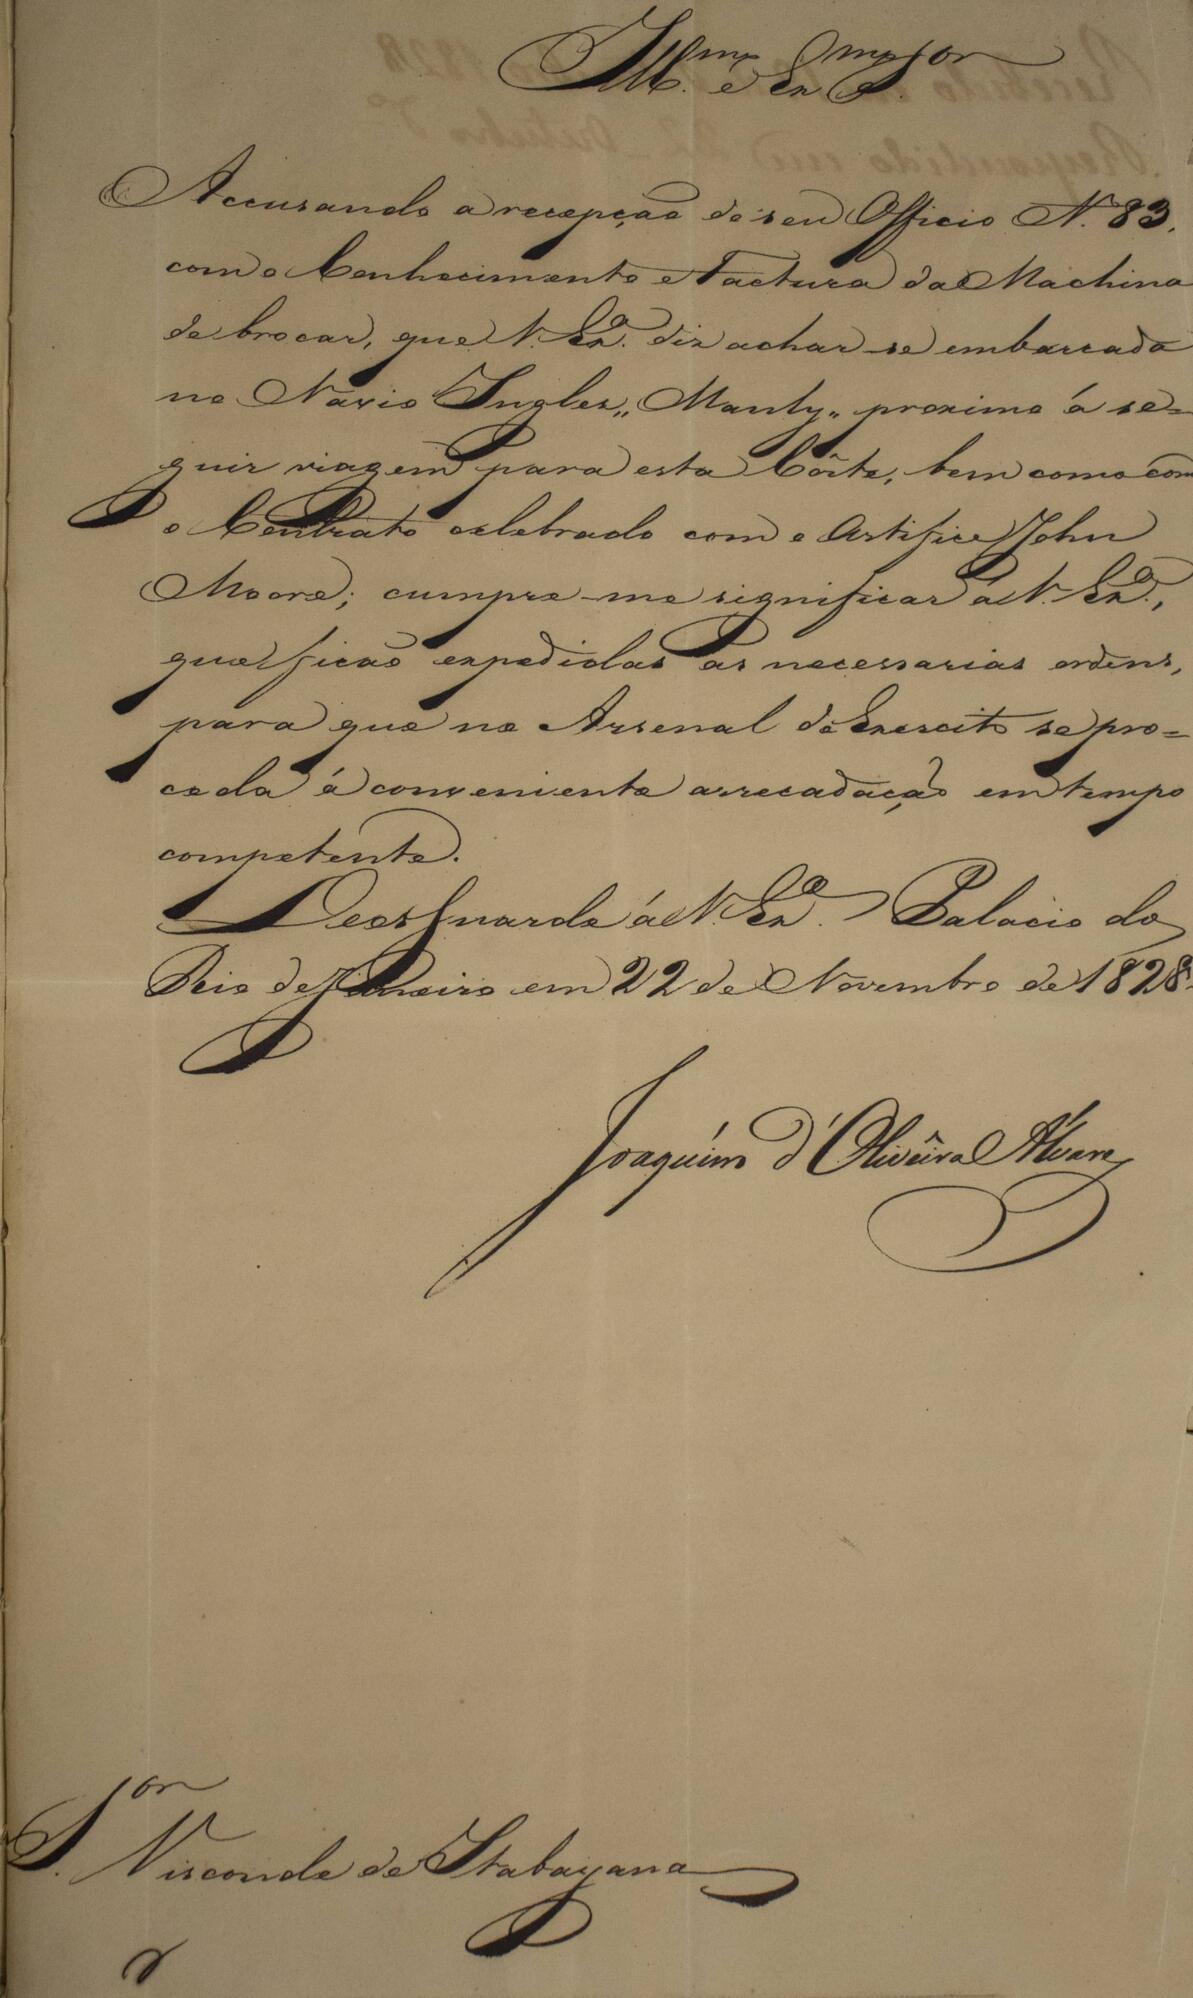 Ill.mo e Ex.mo S.or
Accusando a recepção do seu Officio N. 83,
com o Conhecimento e Factura da Machina
de brocar, que V. Ex.a diz achar-se embarcada
no Navio Inglez „Manly„ proximo á se=
guir viagem para esta Côrte, bem como com
o Contrato celebrado com o Artifice John
Moore; cumpre-me significar á V. Ex.a,
que ficão expedidas as necessarias ordens,
para que no Arsenal do Exercito se pro=
ceda á conveniente arrecadação em tempo
competente.
Deos Guarde á V. Ex.a Palacio do
Rio de Janeiro em 22 de Novembro de 1828.
Joaquim d'Oliveira Alvarez
S.or Visconde de Itabayana